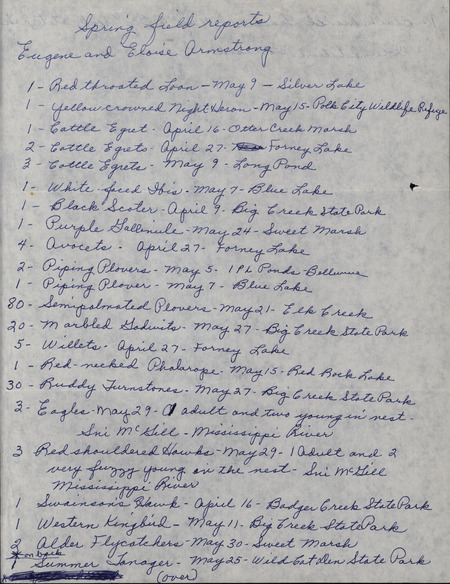 Spring field reports
Eugene and Eloise Armstrong
1 - Red throated Loon - May 9 - Silver Lake
1 - Yellow crowned Night Heron - May 15 - Polk City Wildlife Refuge
1 - Cattle Egret - April 16 - Otter Creek Marsh
2 - Cattle Egrets - April 27 - Forney Lake
3 - Cattle Egrets - May 9 - Long Pond
1 - White-faced Ibis - May 7 - Blue Lake
1 - Black Scoter - April 9 - Big Creek State Park
1 - Purple Gallinule - May 24 - Sweet Marsh
4 - Avocets - April 27 - Forney Lake
2 - Piping Plovers - May 5 - IPL Ponds - Bellevue
1 - Piping Plover - May 7 - Blue Lake
80 - Semipalmated Plovers - May 21 - Elk Creek
20 - Marbled Godwits - May 27 - Big Creek State Park
5 - Willets - April 27 - Forney Lake
1 - Red-necked Phalarope - May 15 - Red Rock Lake
30 - Ruddy Turnstones - May 27 - Big Creek State Park
3 - Eagles - May 29 - 1 adult and two young in nest -
Sni McGill - Mississippi River
3 Red shouldered Hawks - May 29 - 1 Adult and 2
very fuzzy young in the nest - Sni McGill
Mississippi River
1 Swainson's Hawk - April 16 - Badger Creek State Park
1 Western Kingbird - May 11 - Big Creek State Park
2 Alder Flycatchers - May 30 - Sweet Marsh
* on back
1 Summer Tanager - May 25 - Wild Cat Den State Park
(over)